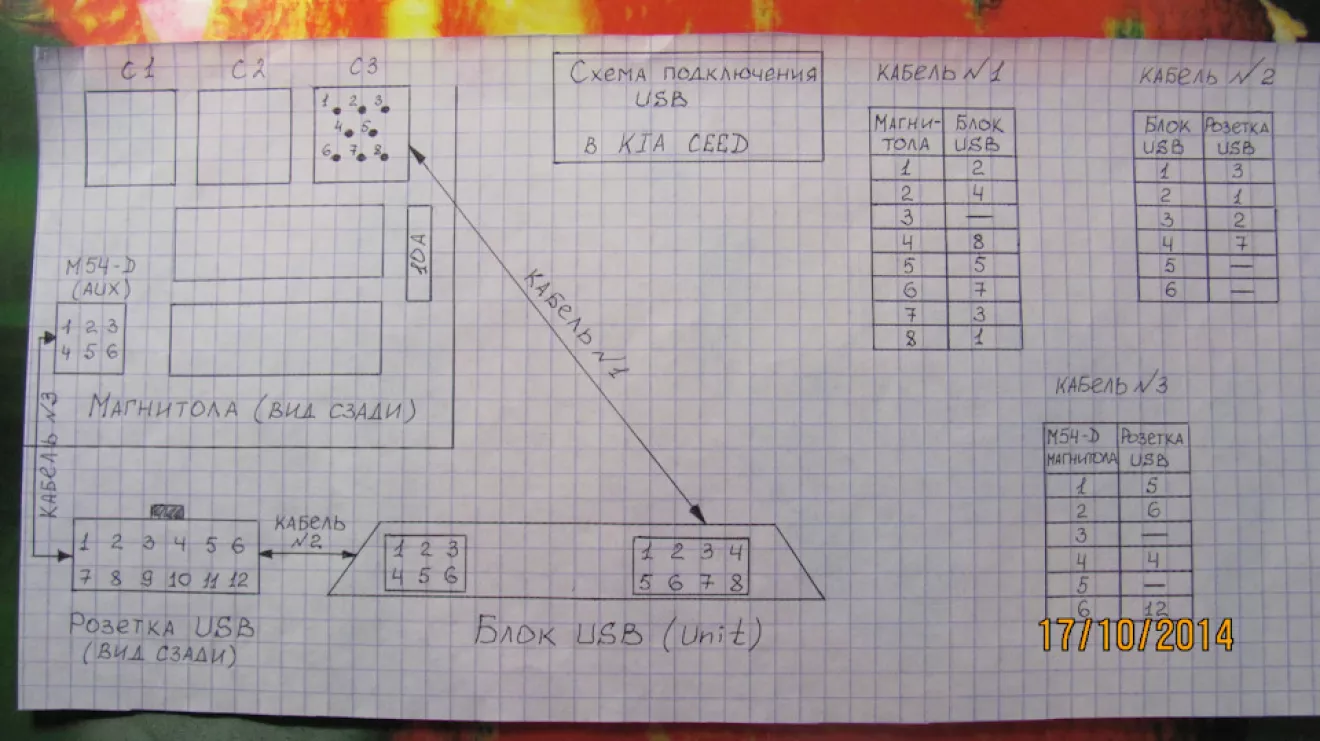 С1 С2 С3
1 2 3
4 5
6 7 8
Схема подключения
USB
в KIA CEED
10А
М54-D
(AUX)
1 2 3
4 5 6
Магнитола (вид сзади)
Кабель №1
Кабель №3
Кабель
№2
1 2 3 4 5 6
7 8 9 10 11 12
Розетка USB
(вид сзади)
1 2 3
4 5 6
1 2 3 4
5 6 7 8
Блок USB (Unit)
Кабель №1
Магни- Блок
тола USB
1 2
2 4
3 —
4 8
5 5
6 7
7 3
8 1
Кабель №2
Блок Розетка
USB USB
1 3
2 1
3 2
4 7
5 —
6 —
Кабель №3
М54-D Розетка
магнитола USB
1 5
2 6
3 —
4 4
5 —
6 12
17/10/2014